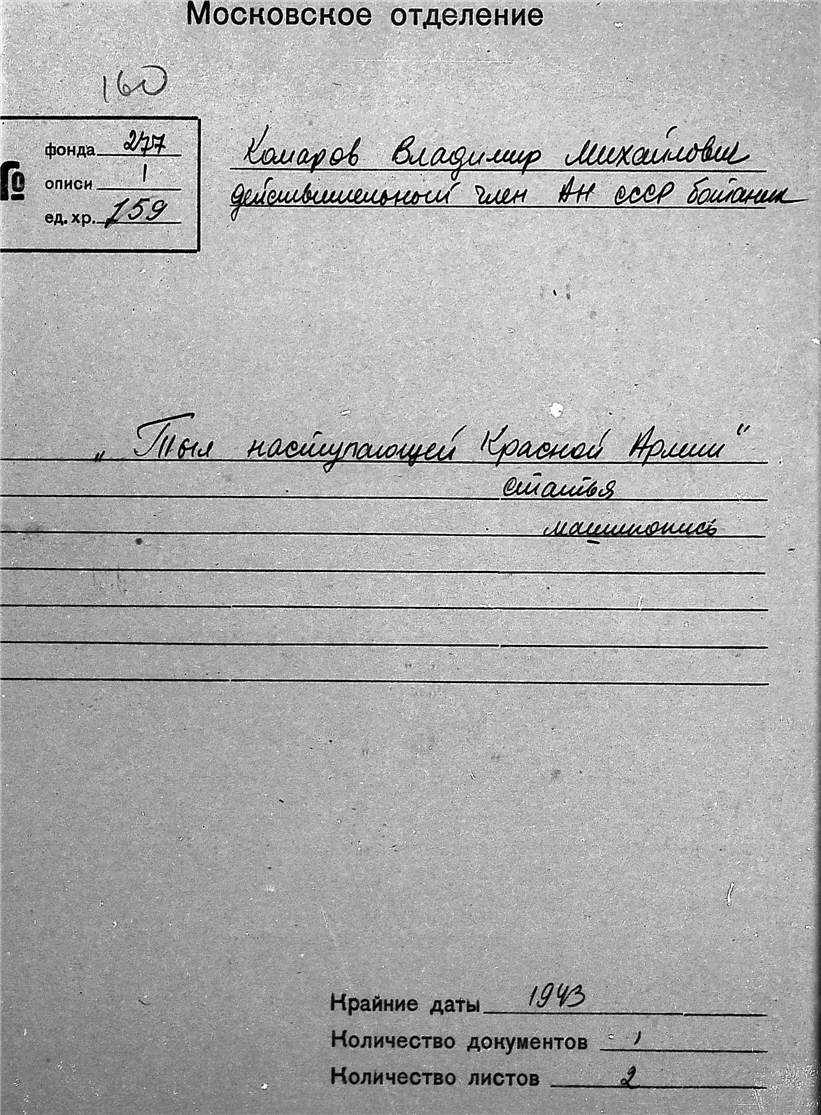 Московское отделение
160
№
фонда 277
описи 1
ед. хр. 159
Комаров Владимир Михайлович
действительный член АН СССР ботаник
„Тыл наступающей Красной Армии“
статья
машинопись
Крайние даты 1943
Количество документов 1
Количество листов 2